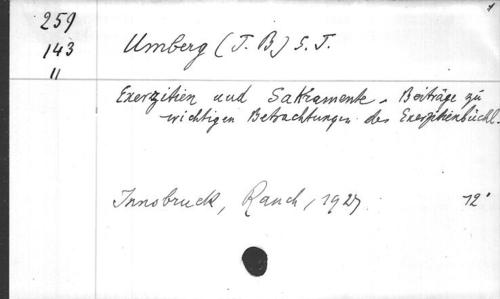 259
143
11
Umberg (J. B.) S. J.
Exerzitien und Sakramente. Beiträge zu
wichtigen Betrachtungen des Exerzitienbüchl.
Innsbruck, Rauch, 1927.
12°